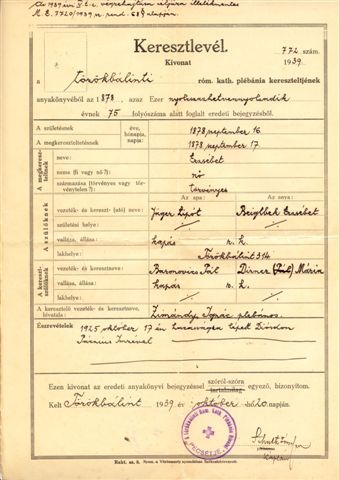 Az 1939 évi IV. t.c. végrehajtása céljára illetékmentes
M. E. 7720/1939 sz. rend. 68 § alapján.
Keresztlevél.
772 szám.
Kivonat
1939.
a törökbálinti róm. kath. plébánia kereszteltjének
anyakönyvéből az 1878, azaz Ezer nyolcszázhetvennyolcadik
évben 75 folyószáma alatt foglalt eredeti bejegyzésből.
A születésnek
éve, hónapja, napja:
1878 september 16.
A megkereszteltetésnek
1878 september 17.
A megkereszteltnek
neve:
Erzsébet
neme (fi vagy nő?):
nő
származása (törvényes vagy törvénytelen?):
törvényes
Az apa:
Az anya:
A szülőknek
vezeték- és kereszt- (utó) neve:
Jäger Lipót
Beiglbek Erzsébet
születési helye:
vallása, állása:
kapás
r. k.
lakhelye:
Törökbálint 314
A keresztszülőknek
vezeték- és keresztneve:
Baranovics Pál
Dirner (Pál) Mária
vallása, állása:
kapás
r. k.
lakhelye:
A keresztelő vezeték- és keresztneve, hivatala:
Zimándy Ignác plébános.
Észrevételek
1925 október 17 én házasságra lépett Diósdon
Ezen kivonat az eredeti anyakönyvi bejegyzéssel szóról-szóra tartalmilag egyező, bizonyítom.
Kelt Törökbálint 1939 év október hó 20 napján.
PECSÉTJE